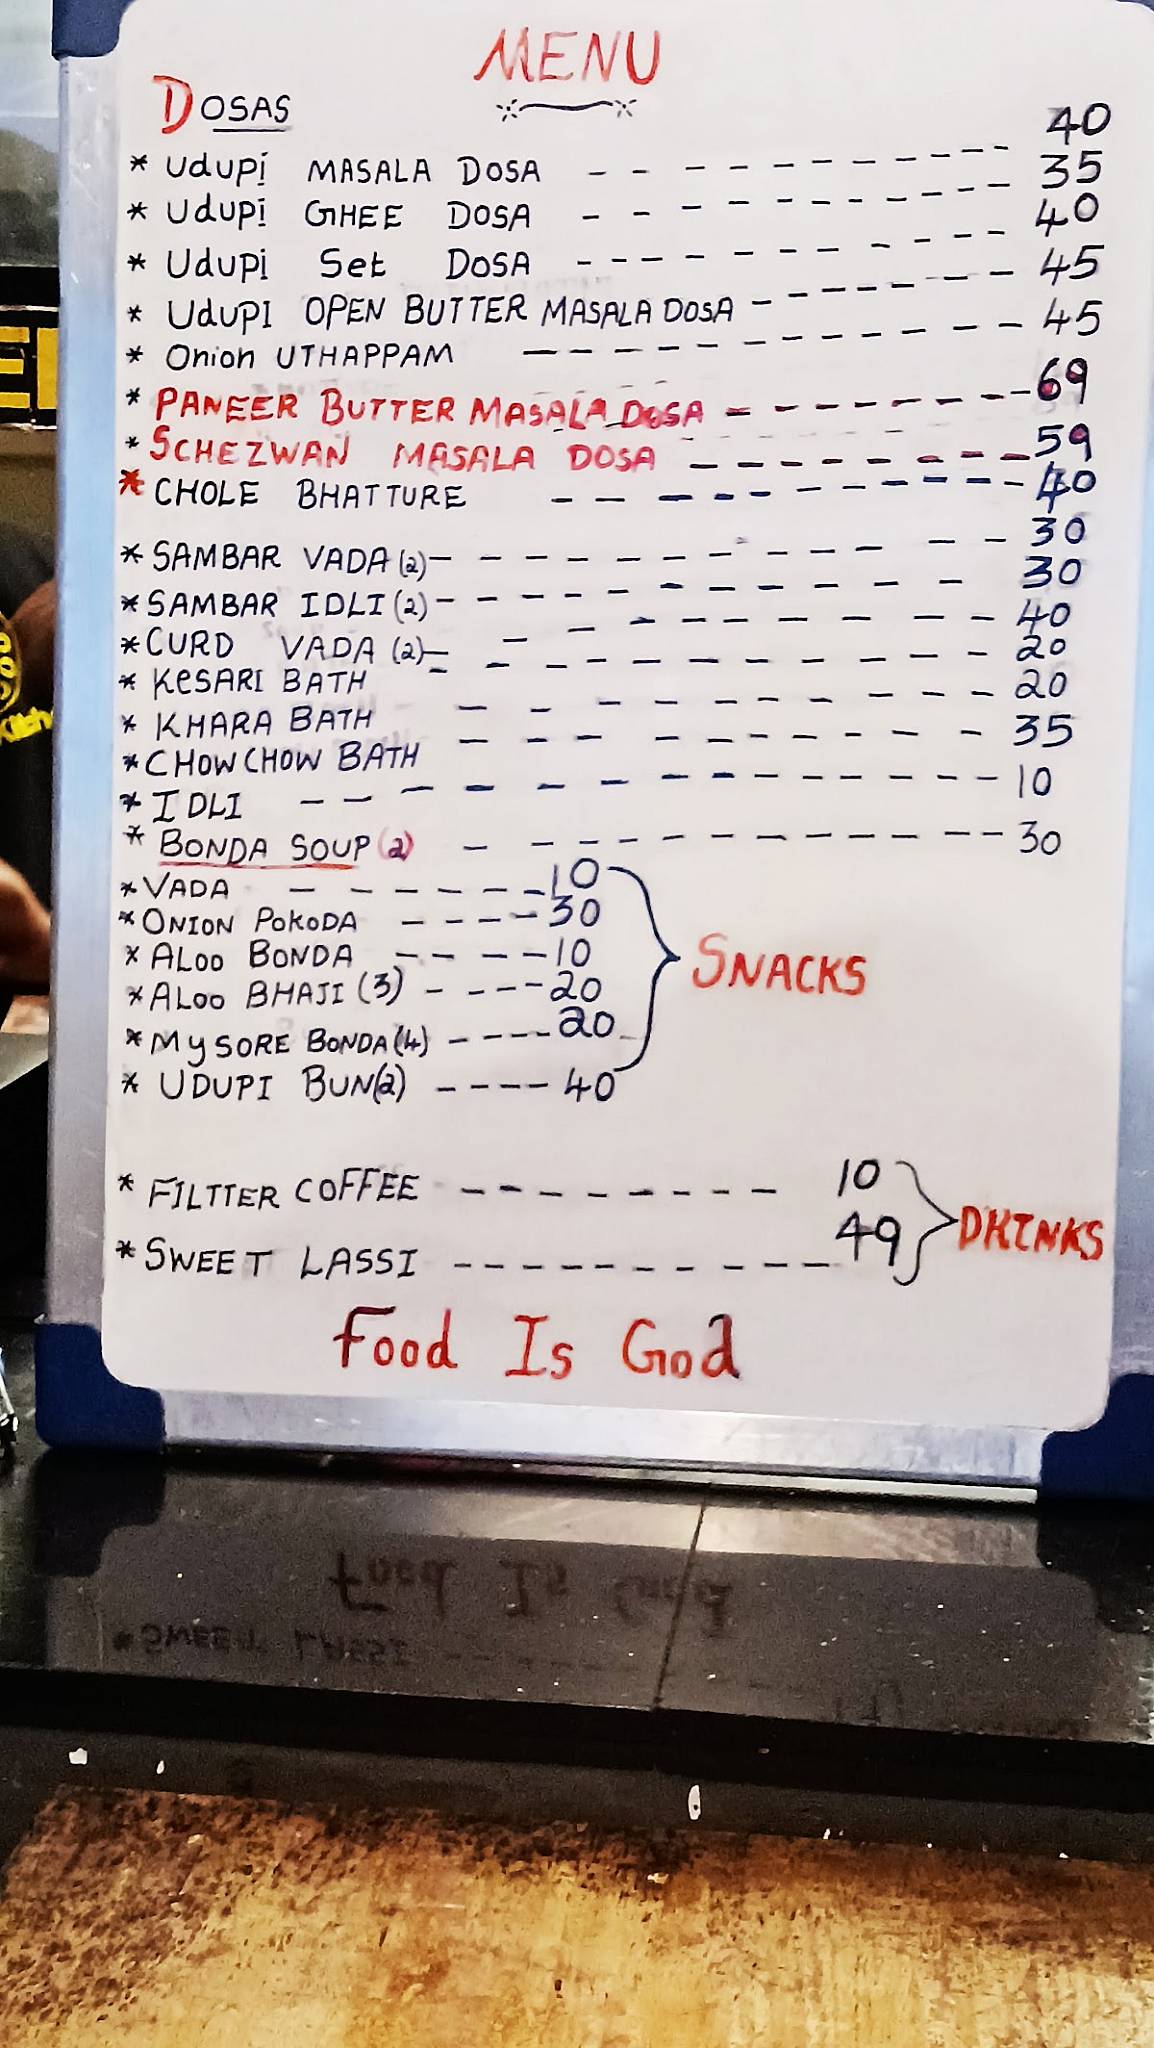 MENU
DOSAS
* Udupi MASALA DOSA - - - - - - - - - - 40
* Udupi GHEE DOSA - - - - - - - - - - 35
* Udupi Set DOSA - - - - - - - - - - 40
* UdUPI OPEN BUTTER MASALA DOSA - - - - - - - 45
* Onion UTHAPPAM - - - - - - - - - - 45
* PANEER BUTTER MASALA DOSA - - - - - - - - 69
* SCHEZWAN MASALA DOSA - - - - - - - - 59
* CHOLE BHATTURE - - - - - - - - - - 40
* SAMBAR VADA (2) - - - - - - - - - - 30
* SAMBAR IDLI (2) - - - - - - - - - - 30
* CURD VADA (2) - - - - - - - - - - 40
* KeSARI BATH - - - - - - - - - - 20
* KHARA BATH - - - - - - - - - - 20
* CHOW CHOW BATH - - - - - - - - - - 35
* IDLI - - - - - - - - - - 10
* BONDA SOUP (2) - - - - - - - - - - 30
* VADA - - - - - - 10
* ONION POKODA - - - - 30
* ALOO BONDA - - - - 10
SNACKS
* ALOO BHAJI (3) - - - - 20
* MySORE BONDA (4) - - - - 20
* UDUPI BUN (2) - - - - 40
* FILTTER COFFEE - - - - - - - - 10
DRINKS
* SWEET LASSI - - - - - - - - - - 49
Food Is God